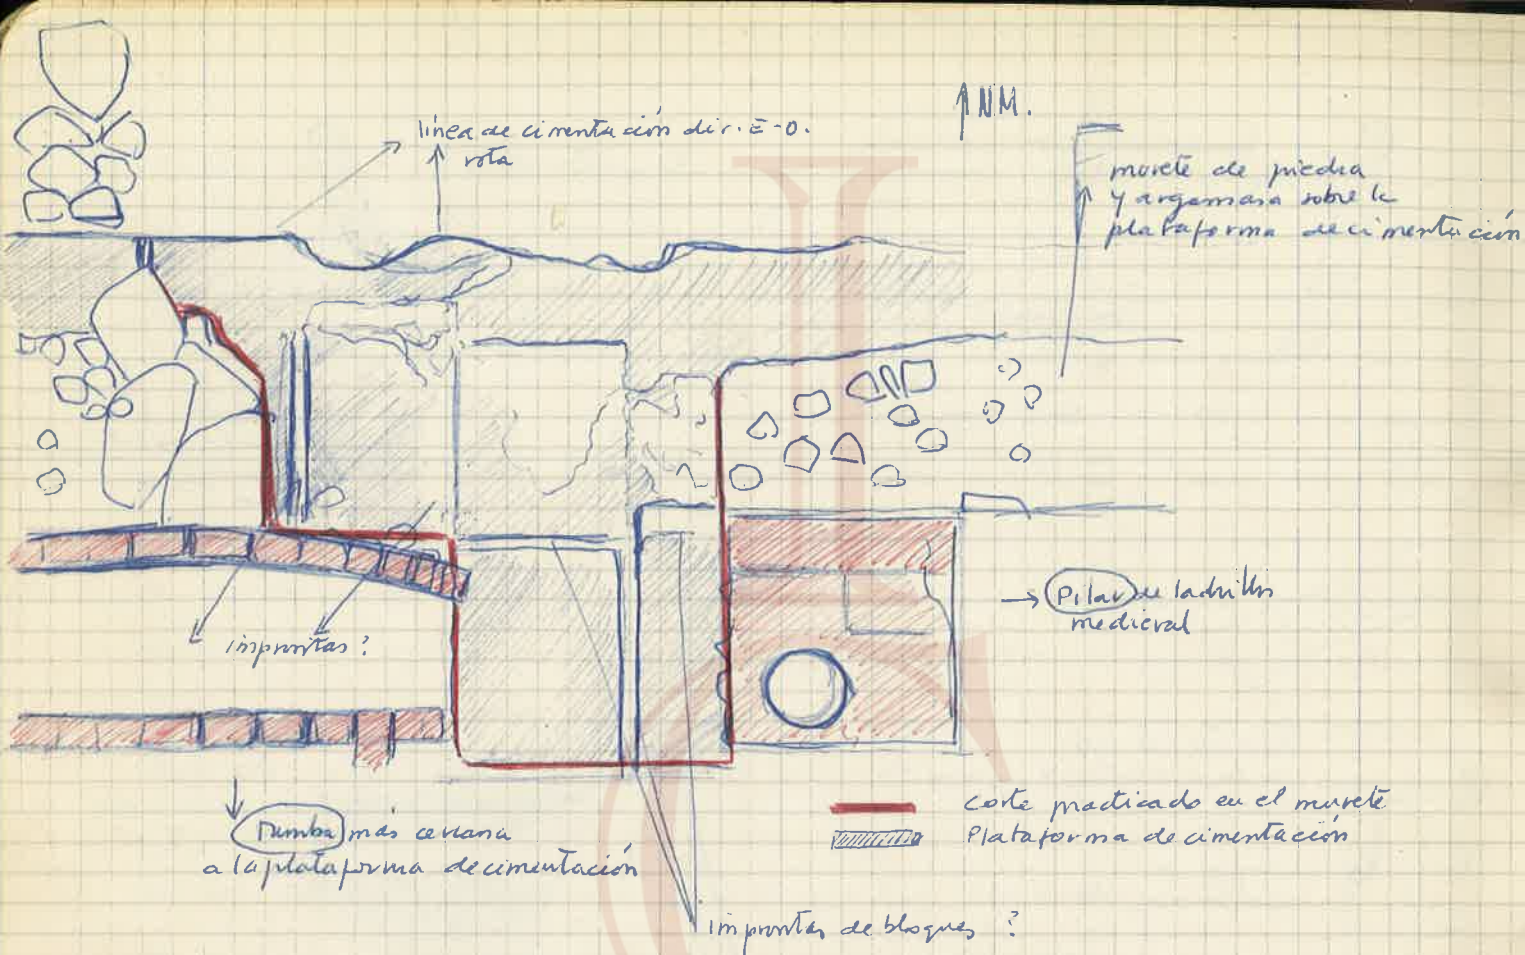 ↑ NM.
línea de cimentación dir. E-O.
rota
murete de piedra
y argamasa sobre la
plataforma de cimentación
→ Pilar de ladrillo
medieval
improntas ?
Tumba más cercana
a la plataforma de cimentación
Corte practicado en el murete
Plataforma de cimentación
improntas de bloques ?